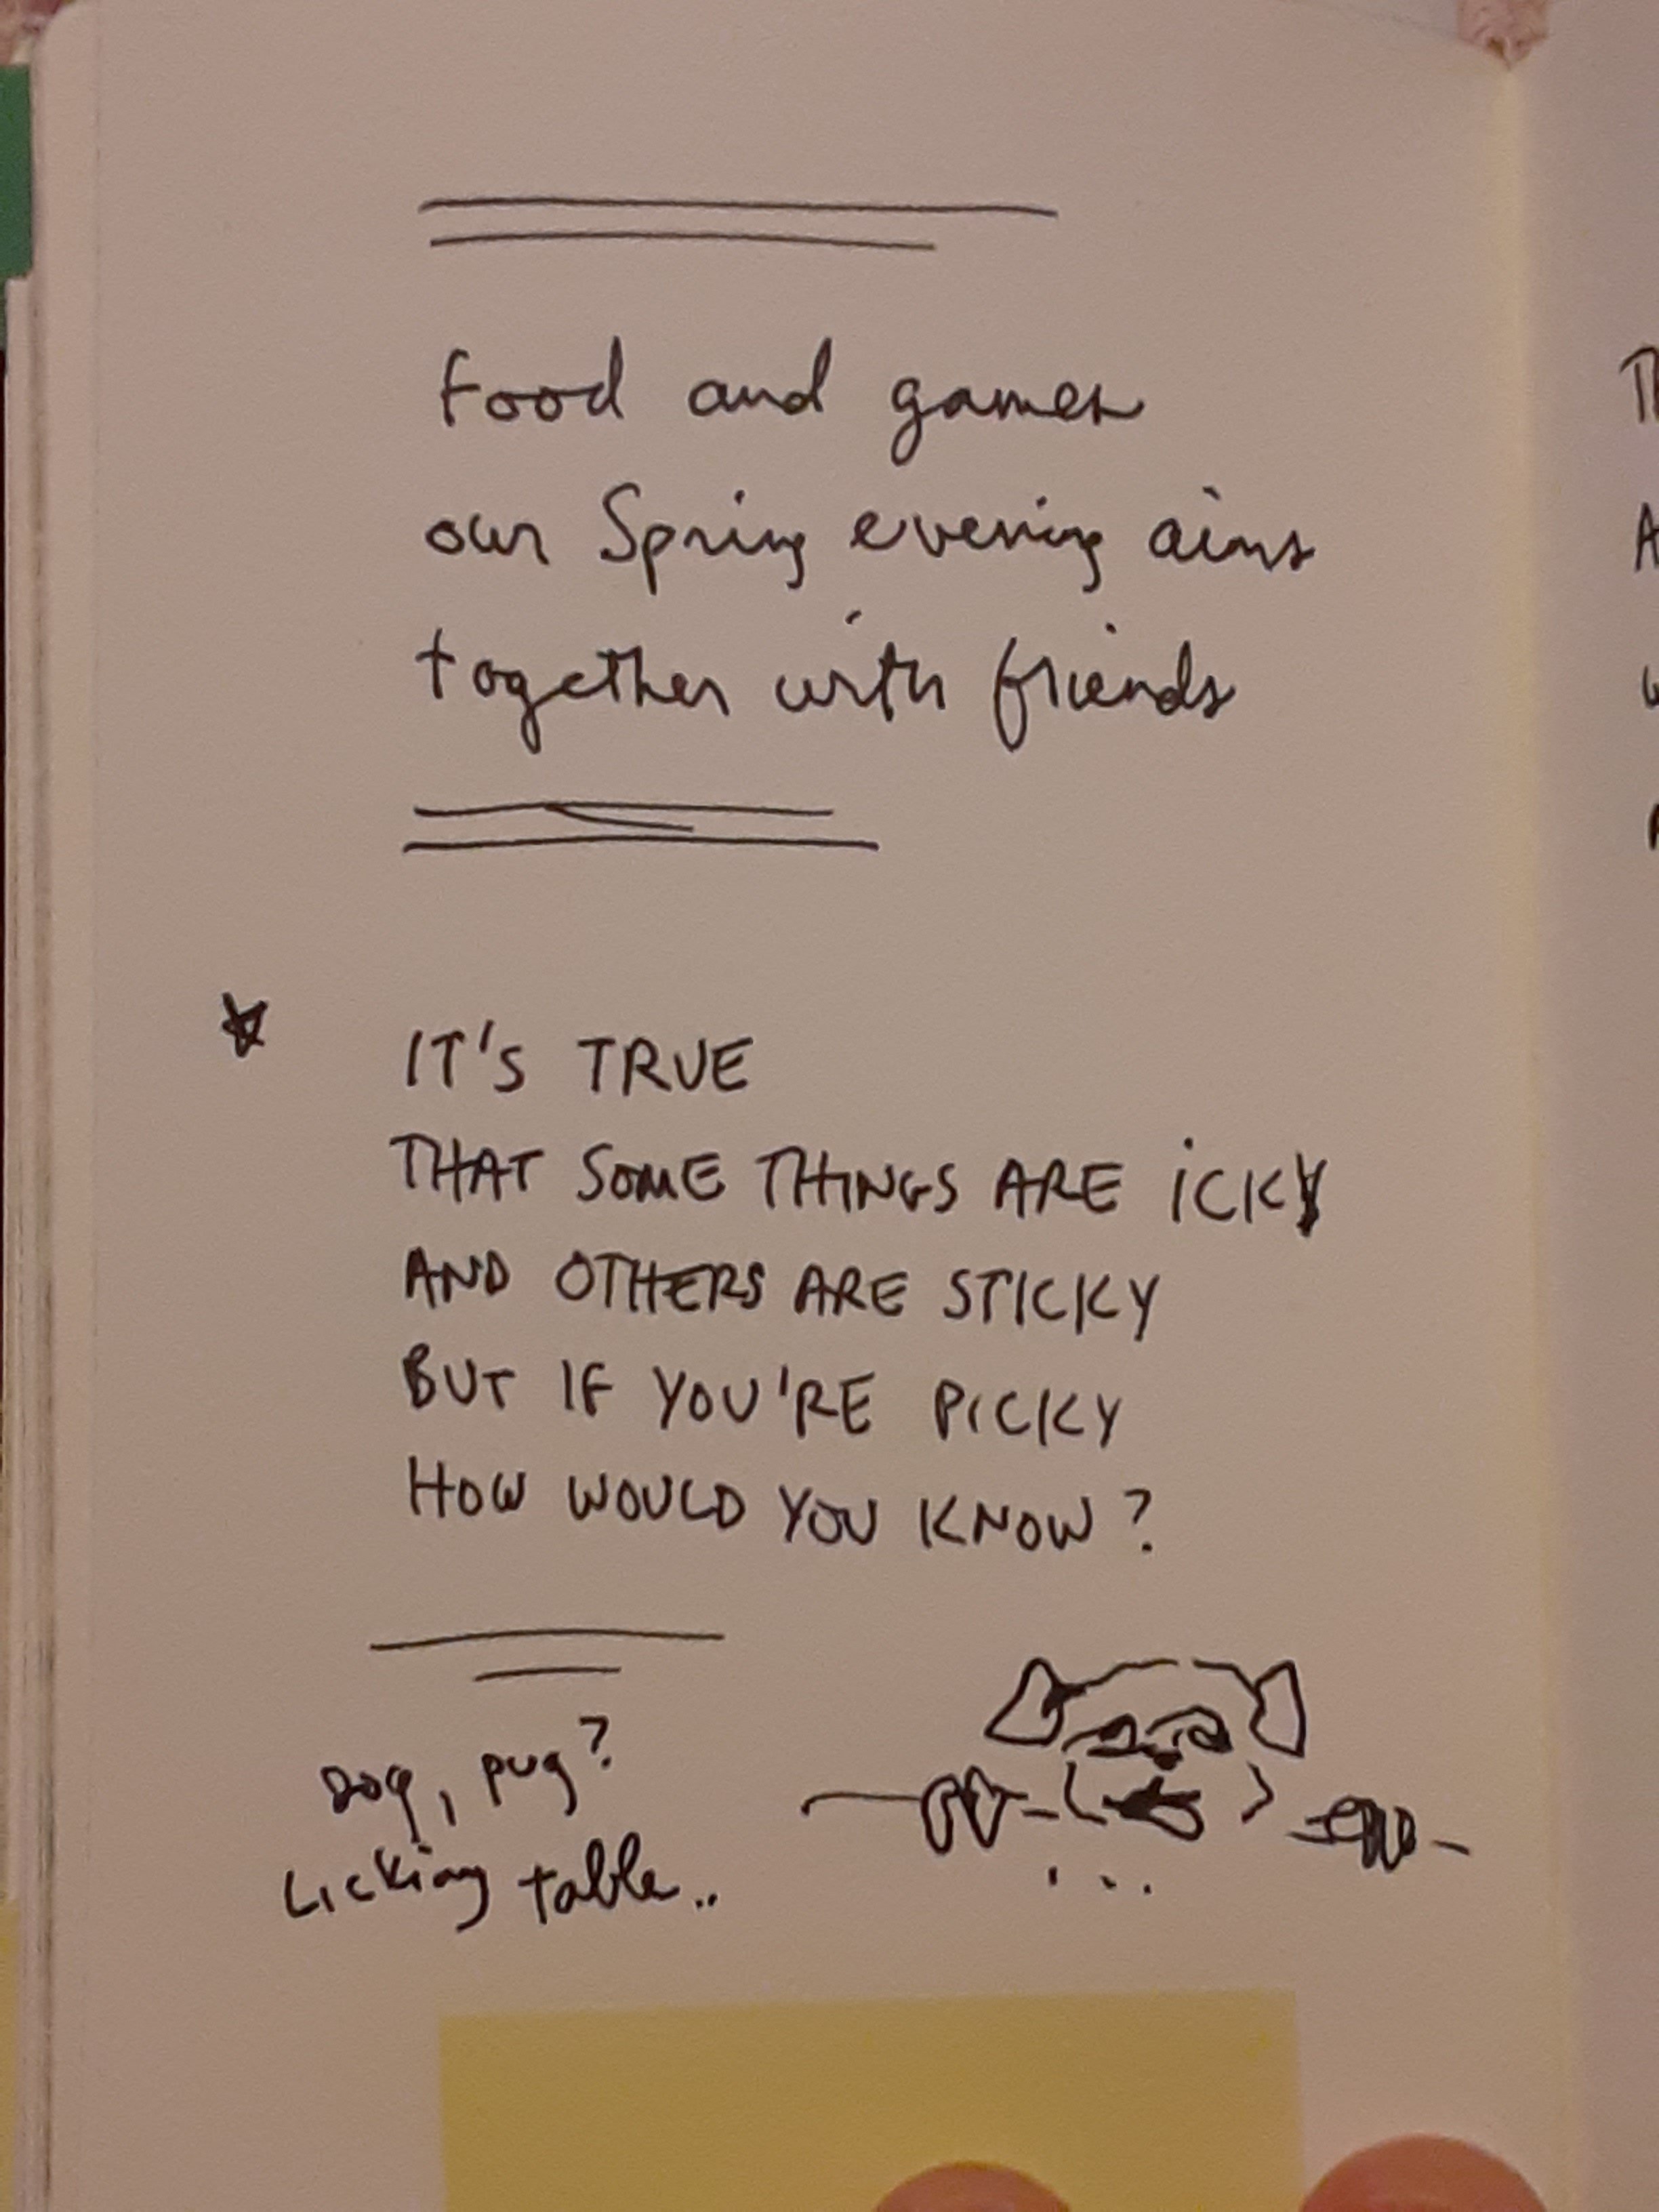 Food and games
our Spring evening aims
together with friends
IT'S TRUE
THAT SOME THINGS ARE iCKY
AND OTHERS ARE STICKY
BUT IF YOU'RE PICKY
HOW WOULD YOU KNOW?
Dog, pug?
Licking table..